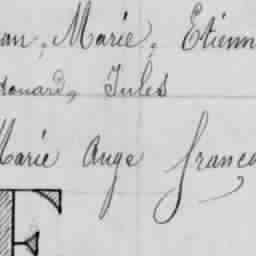 an, Marie, Etienn
douard, Jules
Marie Ange franço
F